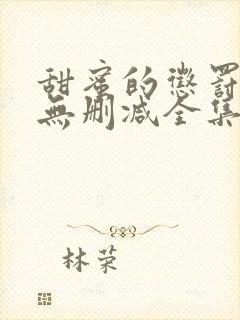 甜蜜的懲罰
無删减全集
林荣